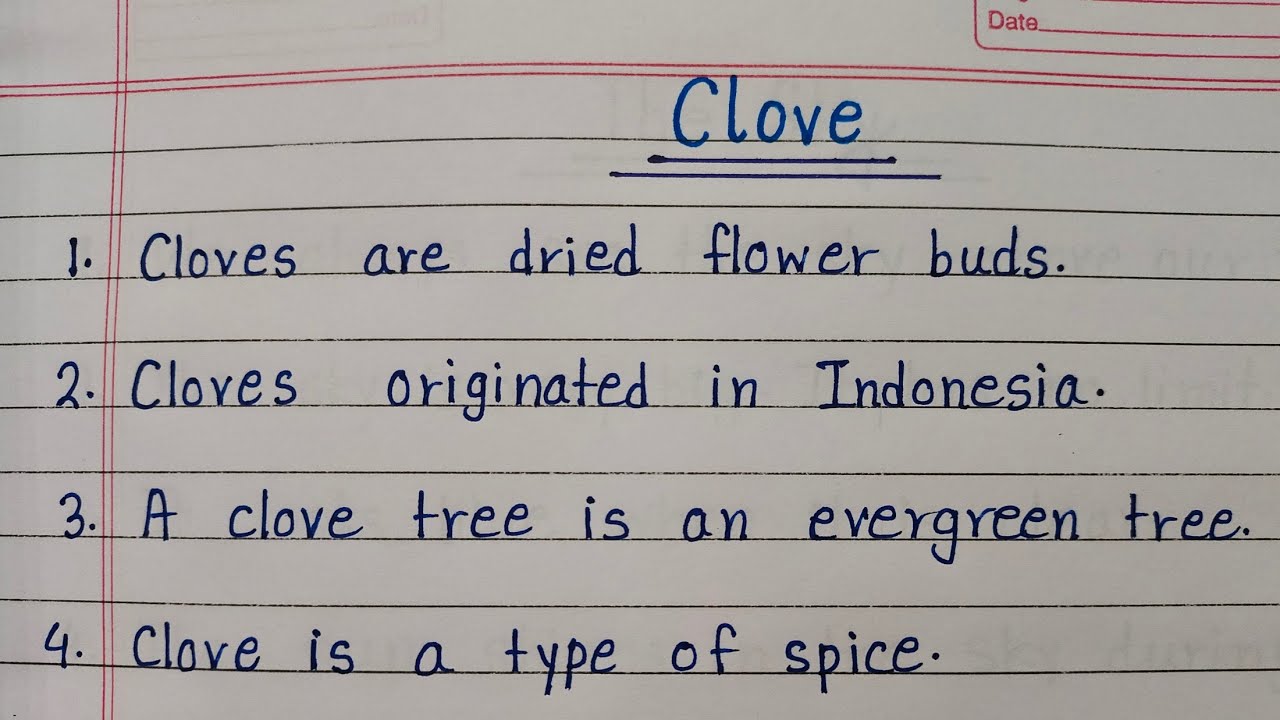 Date
Clove
1. Cloves are dried flower buds.
2. Cloves originated in Indonesia.
3. A clove tree is an evergreen tree.
4. Clove is a type of spice.